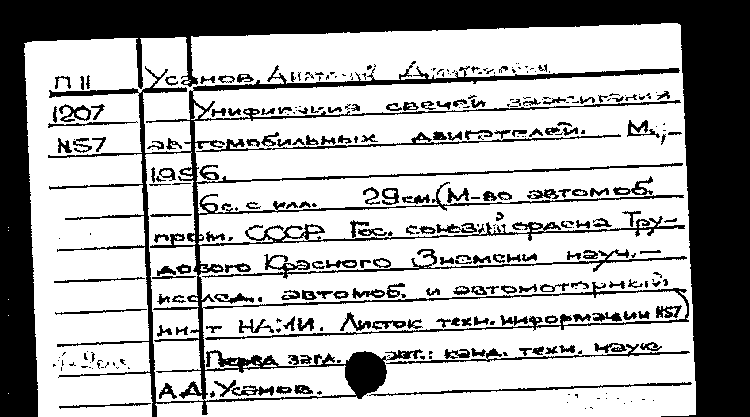 П 11 Усанов, Анатолий Дмитриевич
1207 Унификация свечей зажигания
№57 автомобильных двигателей. М.,-
1956.
6 с. с илл. 29 см. (М-во автомоб.
пром. СССР. Гос. союзный ордена Тру-
дового Красного Знамени науч.-
исслед. автомоб. и автомоторный
ин-т НАМИ. Листок техн. информации №57)
Перед загл. авт.: канд. техн. наук
А.Д. Усанов.